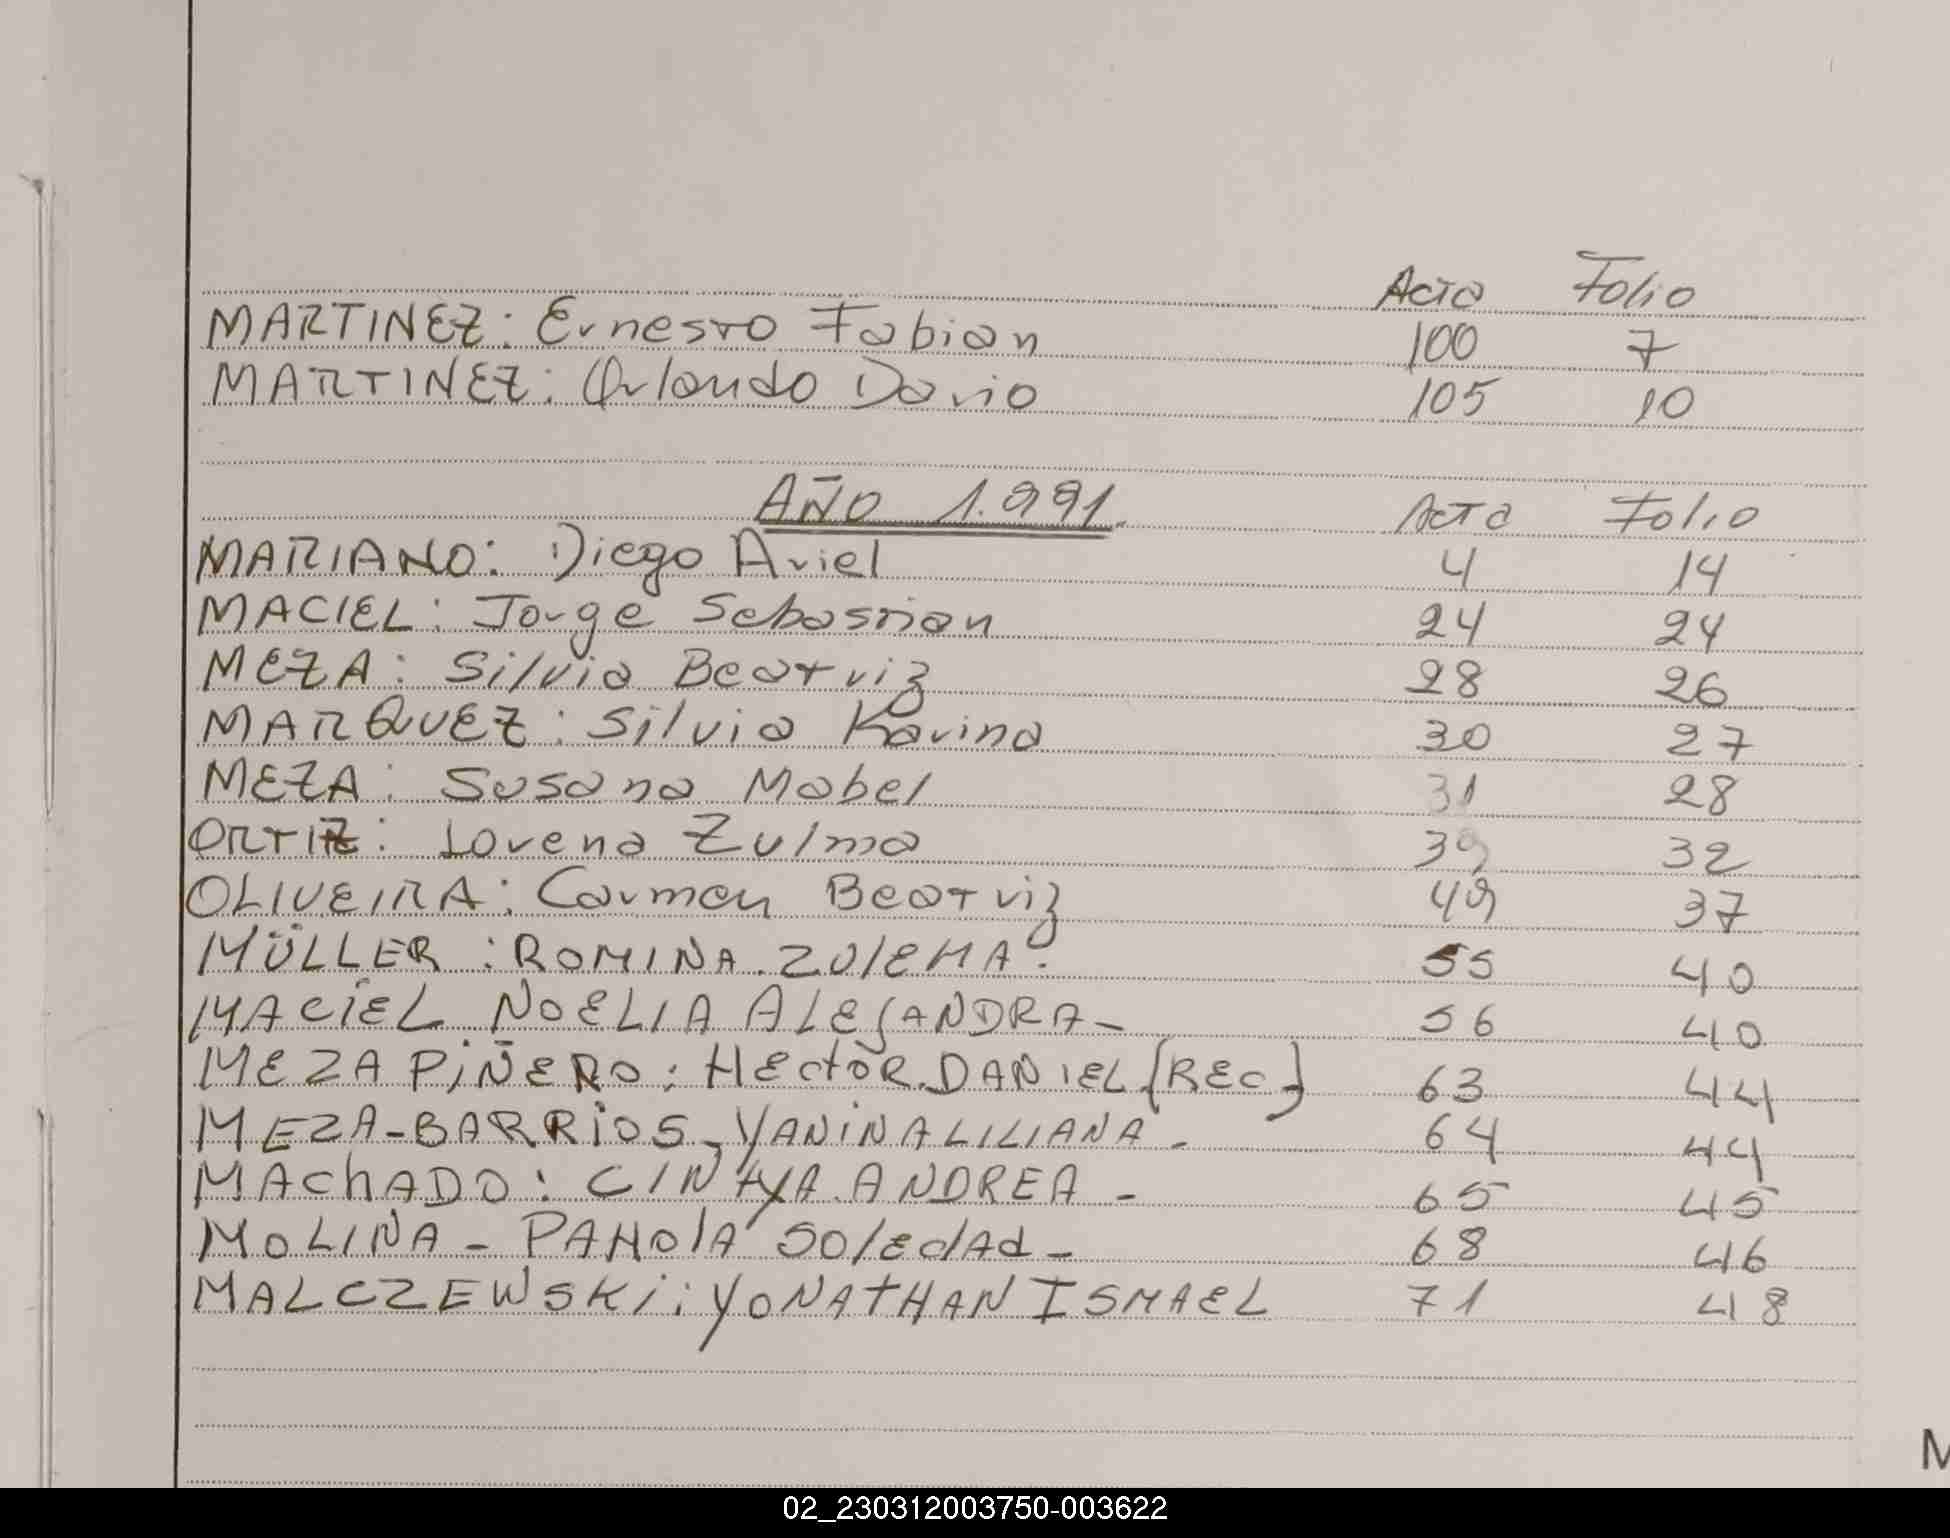 Acta Folio
MARTINEZ: Ernesto Fabian 100 7
MARTINEZ: Orlando Dario 105 10
AÑO 1.991. Acta Folio
MARIANO: Diego Ariel 4 14
MACIEL: Jorge Sebastian 24 24
MEZA: Silvia Beatriz 28 26
MARQUEZ: Silvia Karina 30 27
MEZA: Susana Mabel 31 28
ORTIZ: Lorena Zulma 39 32
OLIVEIRA: Carmen Beatriz 49 37
MÜLLER: ROMINA. ZUlEMA. 55 40
MACIEL NOELIA ALEJANDRA- 56 40
MEZA PIÑERO: HECtOR. DANIEL (REC) 63 44
MEZA-BARRIOS-YANINA LILIANA- 64 44
MAChADO: CINtYA. ANDREA - 65 45
MOLINA - PAMOlA SOlEdAd - 68 46
MALCZEWSKi: YONAtHAN ISMAEL 71 48
M
02_230312003750-003622